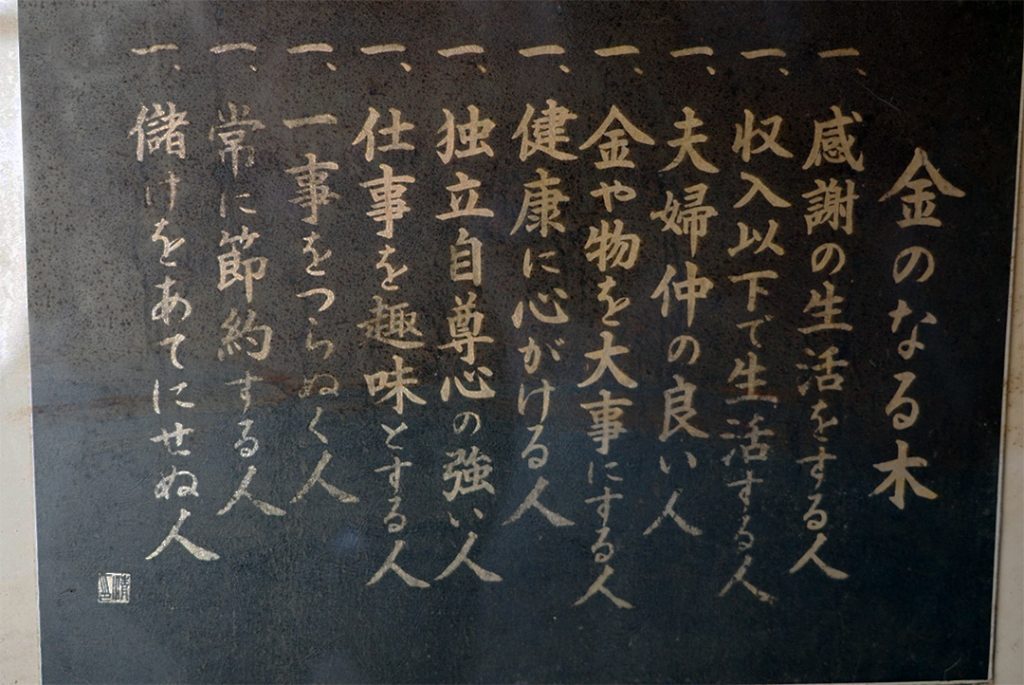 金のなる木
一、感謝の生活をする人
一、収入以下で生活する人
一、夫婦仲の良い人
一、金や物を大事にする人
一、健康に心がける人
一、独立自尊心の強い人
一、仕事を趣味とする人
一、一事をつらぬく人
一、常に節約する人
一、儲けをあてにせぬ人